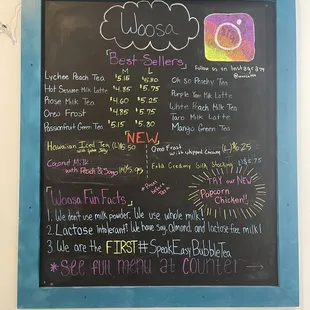 Woosa
Best-Sellers
Follow us on Instagram
M L
Lychee Peach Tea $5.15 $5.80
Hot Sesame Milk Latte $4.85
Rose Milk Tea $4.60 $5.25
Oreo Frost $4.85 $5.75
Passionfruit Green Tea $5.15 $5.80
Oh So Peachy Tea
Purple Yam Milk Latte
White Peach Milk Tea
Taro Milk Latte
Mango Green Tea
NEW
Hawaiian Iced Tea (L) $6.50
Coconut Milk
with Peach & Sago $5.95
Oreo Frost (L) $6.25
with Whipped Cream
Fold Creamy Silk Stocking
$5.75
TRY our NEW
Popcorn
Chicken!!
Woosa Fun Facts
1. We don't use milk powder. We use whole milk!
2. Lactose Intolerant? We have soy, almond and lactose-free milk!
3. We are the FIRST #SpeakEasyBubbleTea
*See full menu at counter